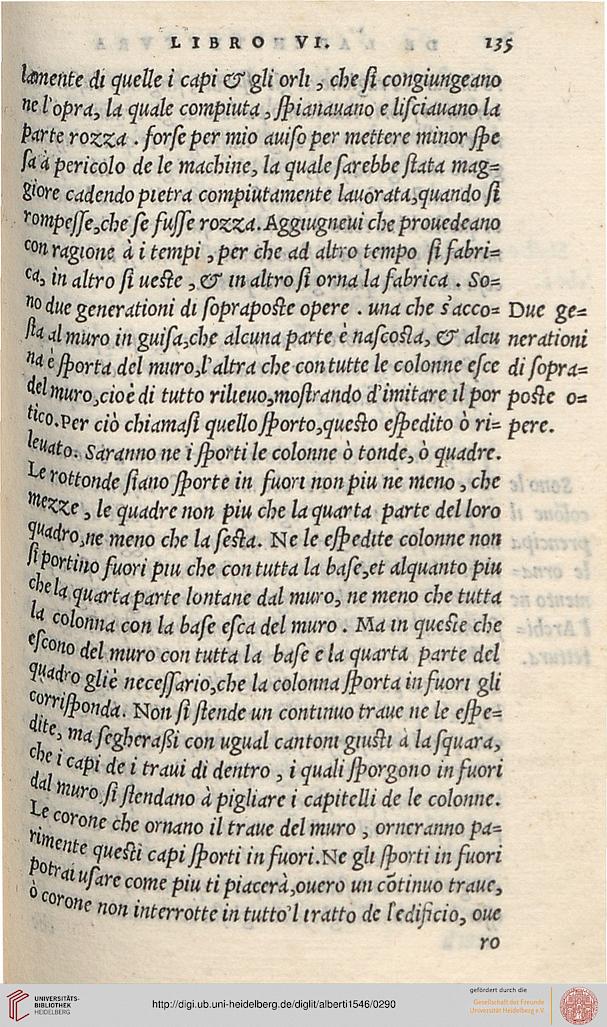 LIBRO VI. 135
lamente di quelle i capi & gli orli, che si congiungeano
ne l'opra, la quale compiuta, spianauano e lisciauano la
parte rozza. forse per mio auiso per mettere minor spe
sa à pericolo de le machine, la quale sarebbe stata mag=
giore cadendo pietra compiutamente lauorata, quando si
rompesse, che se fusse rozza. Aggiugneui che prouedeano
con ragione à i tempi, per che ad altro tempo si fabri=
ca, in altro si ueste, & in altro si orna la fabrica. So=
no due generationi di sopraposte opere. una che s'acco=
sta al muro in guisa, che alcuna parte è nascosta, & alcu
na è sporta del muro, l'altra che con tutte le colonne esce
del muro, cioè di tutto rilieuo, mostrando d'imitare il por
tico. Per ciò chiamasi quello sporto, questo espedito ò ri=
leuato. Saranno ne i sporti le colonne ò tonde, ò quadre.
Due ge=
nerationi
di sopra=
poste o=
pere.
Le rottonde siano sporte in fuori non piu ne meno, che
mezze, le quadre non piu che la quarta parte del loro
quadro, ne meno che la sesta. Ne le espedite colonne non
si portino fuori piu che con tutta la base, et alquanto piu
che la quarta parte lontane dal muro, ne meno che tutta
la colonna con la base esca del muro. Ma in queste che
escono del muro con tutta la base e la quarta parte del
quadro gliè necessario, che la colonna sporta in fuori gli
corrisponda. Non si stende un continuo traue ne le espe=
dite, ma segherassi con ugual cantoni giusti à la squara,
che i capi de i traui di dentro, i quali sporgono in fuori
dal muro, si stendano à pigliare i capitelli de le colonne.
Le corone che ornano il traue del muro, orneranno pa=
rimente questi capi sporti in fuori. Ne gli sporti in fuori
potrai usare come piu ti piacerà, ouero un cõtinuo traue,
ò corone non interrotte in tutto'l tratto de l'edificio, oue
ro
UNIVERSITÄTS-
BIBLIOTHEK
HEIDELBERG
http://digi.ub.uni-heidelberg.de/diglit/alberti1546/0290
gefördert durch die
Gesellschaft der Freunde
Universität Heidelberg e.V.